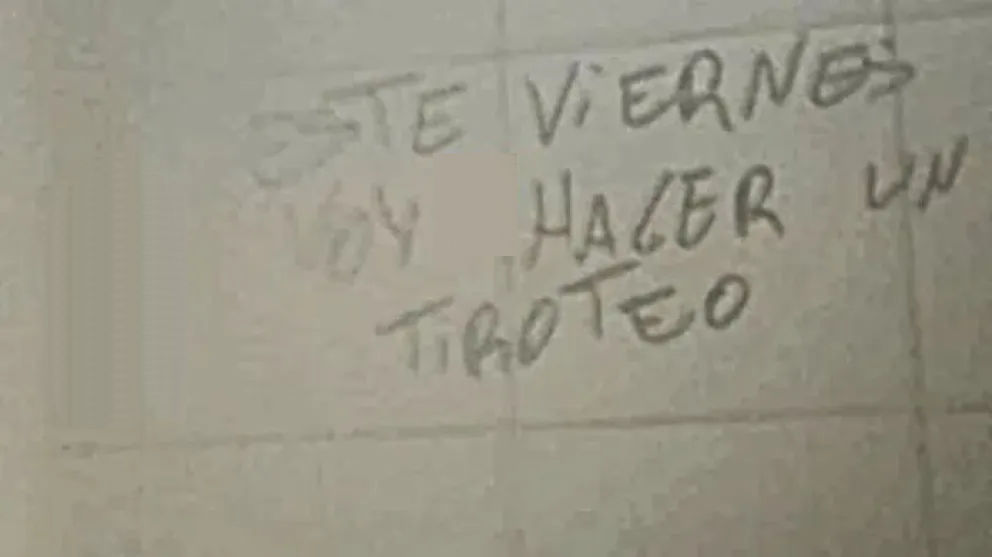 ESTE ViERNES
VOY HACER UN
TiROTEO